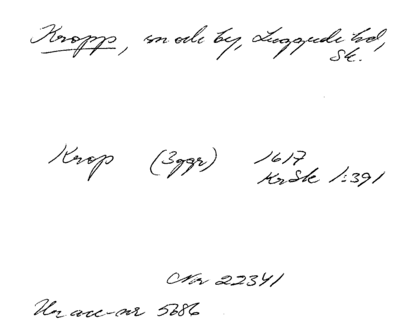 Kropp, sn och by, Luggude hd,
Sk.
Krop (3ggr) 1617
KrSk 1:391
Nr 22341
Ur acc-nr 5686